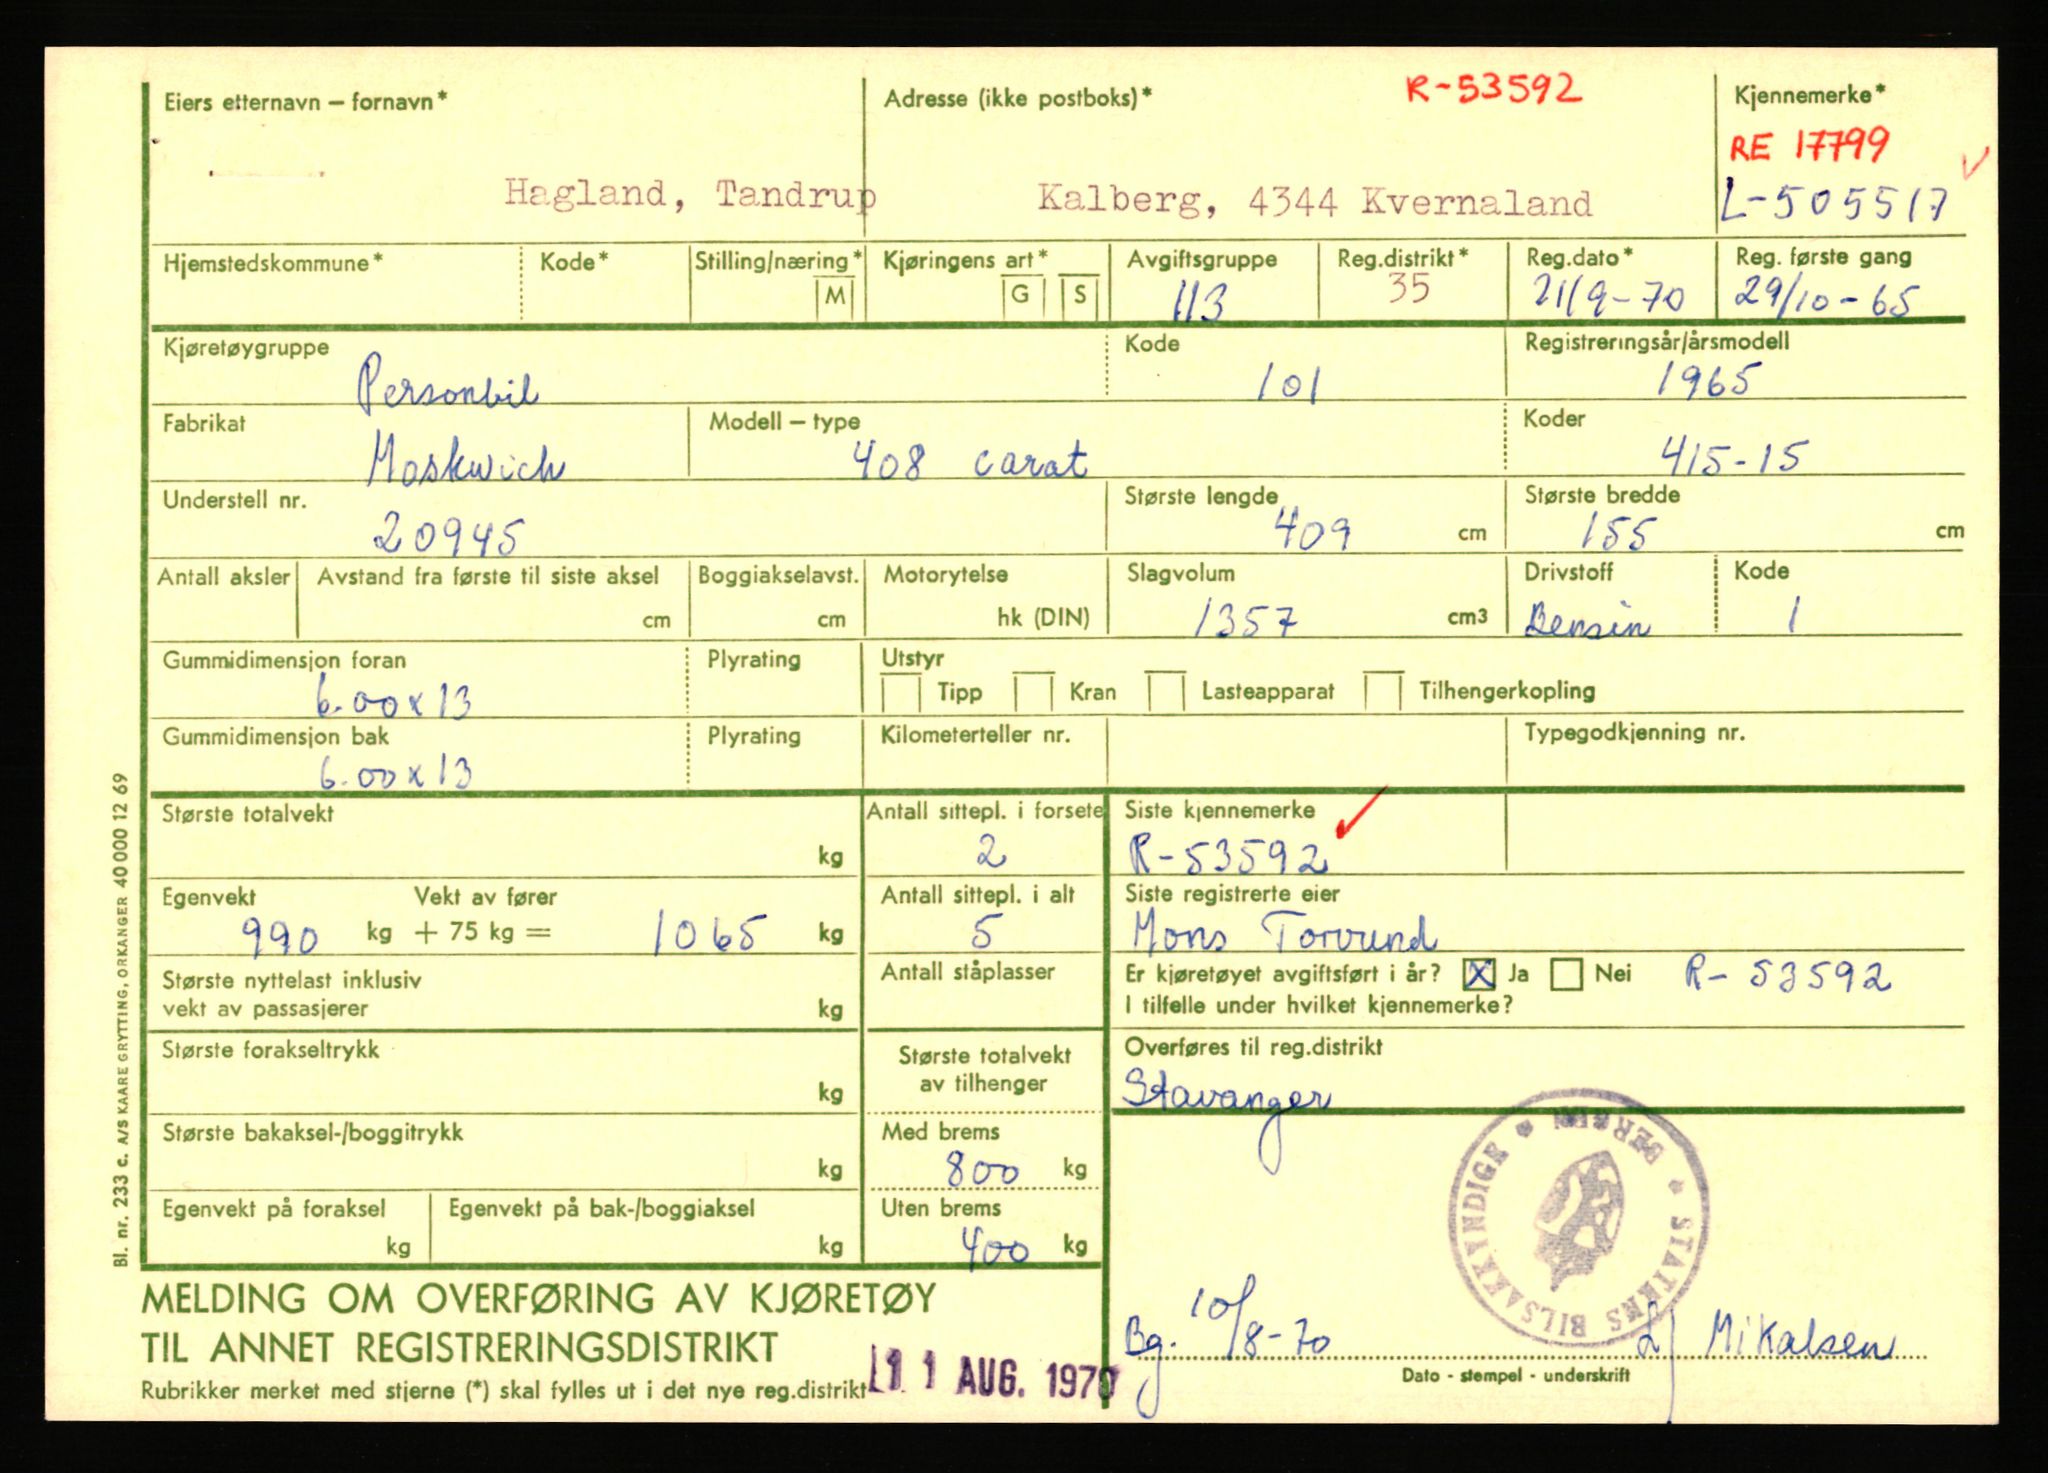 Eiers etternavn – fornavn*
Adresse (ikke postboks)*
R-53592
Kjennemerke*
RE 17799
Hagland, Tandrup
Kalberg, 4344 Kvernaland
L-505517
Hjemstedskommune*
Kode*
Stilling/næring*
M
Kjøringens art*
G
S
Avgiftsgruppe
113
Reg.distrikt*
35
Reg.dato*
21/9-70
Reg. første gang
29/10-65
Kjøretøygruppe
Personbil
Kode
101
Registreringsår/årsmodell
1965
Fabrikat
Moskwich
Modell – type
408 carat
Koder
415-15
Understell nr.
20945
Største lengde
409 cm
Største bredde
155 cm
Antall aksler
Avstand fra første til siste aksel
cm
Boggiakselavst.
cm
Motorytelse
hk (DIN)
Slagvolum
1357 cm3
Drivstoff
Bensin
Kode
1
Gummidimensjon foran
6.00 x 13
Plyrating
Utstyr
Tipp
Kran
Lasteapparat
Tilhengerkopling
Gummidimensjon bak
6.00 x 13
Plyrating
Kilometerteller nr.
Typegodkjenning nr.
Største totalvekt
kg
Antall sittepl. i forsete
2
Siste kjennemerke
R-53592
Egenvekt
Vekt av fører
990 kg + 75 kg = 1065 kg
Antall sittepl. i alt
5
Siste registrerte eier
Mons Torvund
Største nyttelast inklusiv
vekt av passasjerer
kg
Antall ståplasser
Er kjøretøyet avgiftsført i år? X Ja Nei R-53592
I tilfelle under hvilket kjennemerke?
Største forakseltrykk
kg
Største totalvekt
av tilhenger
Overføres til reg.distrikt
Stavanger
Største bakaksel-/boggitrykk
kg
Med brems
800 kg
Egenvekt på foraksel
kg
Egenvekt på bak-/boggiaksel
kg
Uten brems
400 kg
STATENS BILSAKKYNDIGE * BERGEN *
MELDING OM OVERFØRING AV KJØRETØY
TIL ANNET REGISTRERINGSDISTRIKT
Rubrikker merket med stjerne (*) skal fylles ut i det nye reg.distrikt
11 AUG. 1970
Bg. 10/8-70
Mikalsen
Dato - stempel - underskrift
Bl. nr. 233 c. A/S KAARE GRYTTING, ORKANGER 40 000 12 69